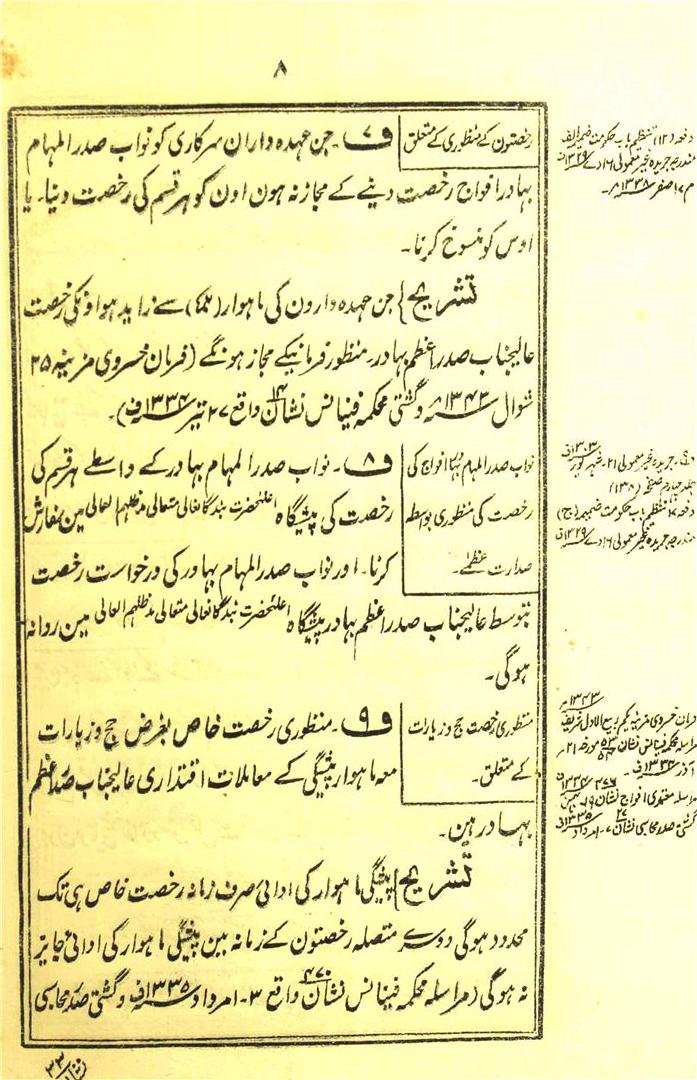 ۸
رخصتون کے منظوری کے متعلق
ف ۷۔ جن عہدہ داران سرکاری کو نواب صدر المہام
بہادر افواج رخصت دینے کے مجاز نہ ہون اون کو ہر قسم کی رخصت دینا۔ یا
اوس کو منسوخ کرنا۔
تشریح} جن عہدہ دارون کی ماہوار سے زاید ہو اونکی رخصت
عالیجناب صدر اعظم بہادر۔ منظور فرمانیکے مجاز ہونگے (فرمان خسروی مزینہ ۲۵
شوال ۱۳۴۳ھ و گشتی محکمہ فینانس نشان ۱۴ واقع ۲۷ تیر ۱۳۳۴ف)۔
نواب صدر المہام بہادر افواج کی
رخصت کی منظوری بواسطہ
صدارت عظمٰے۔
ف ۸۔ نواب صدر المہام بہادر کے واسطے ہر قسم کی
رخصت کی پیشگاہ اعلحضرت بندگانعالی متعالی مدظلہم العالی مین سفارش
کرنا۔ اور نواب صدر المہام بہادر کی درخواست رخصت
بتوسط عالیجناب صدر اعظم بہادر پیشگاہ اعلحضرت بندگانعالی متعالی مدظلہم العالی مین روانہ
ہوگی۔
منظوری رخصت حج و زیارات
کے متعلق۔
ف ۹۔ منظوری رخصت خاص بغرض حج و زیارات
معہ ماہوار پیشگی کے معاملات اقتداری عالیجناب صدر اعظم
بہادر ہین۔
تشریح} پیشگی ماہوار کی ادائی صرف زمانہ رخصت خاص ہی تک
محدود ہوگی دوسرے متصلہ رخصتون کے زمانہ مین پیشگی ماہوار کی ادائی جایز
نہ ہوگی (مراسلہ محکمہ فینانس نشان ۴۷۰ واقع ۳۔ امرداد ۱۳۳۵ف و گشتی صدر محاسبی
دفعہ (۱۲) تنظیم باب حکومت ضمیمہ الف
مندرجہ جریدہ غیر معمولی ۱۶ دے ۱۳۲۹ف
م ۱۷ صفر ۱۳۳۸ھ۔
جریدہ غیر معمولی ۲۱۔ شہریور ۱۳۰۳ف
جلد چہارم صفحہ (۱۳۸)
تنظیم باب حکومت ضمیمہ (ج)
مندرجہ جریدہ غیر معمولی ۱۶ دے ۱۳۲۹ف
۱۳۴۳ھ
فرمان خسروی مزینہ یکم ربیع الاول شریف
مراسلہ محکمہ فینانس نشان مورخہ ۲۱
آذر ۱۳۳۴ف۔
مراسلہ معتمدی افواج نشان ۱۹۔ بہمن
گشتی صدر محاسبی نشان ۲۷ ۷۔ امرداد ۱۳۳۵ف